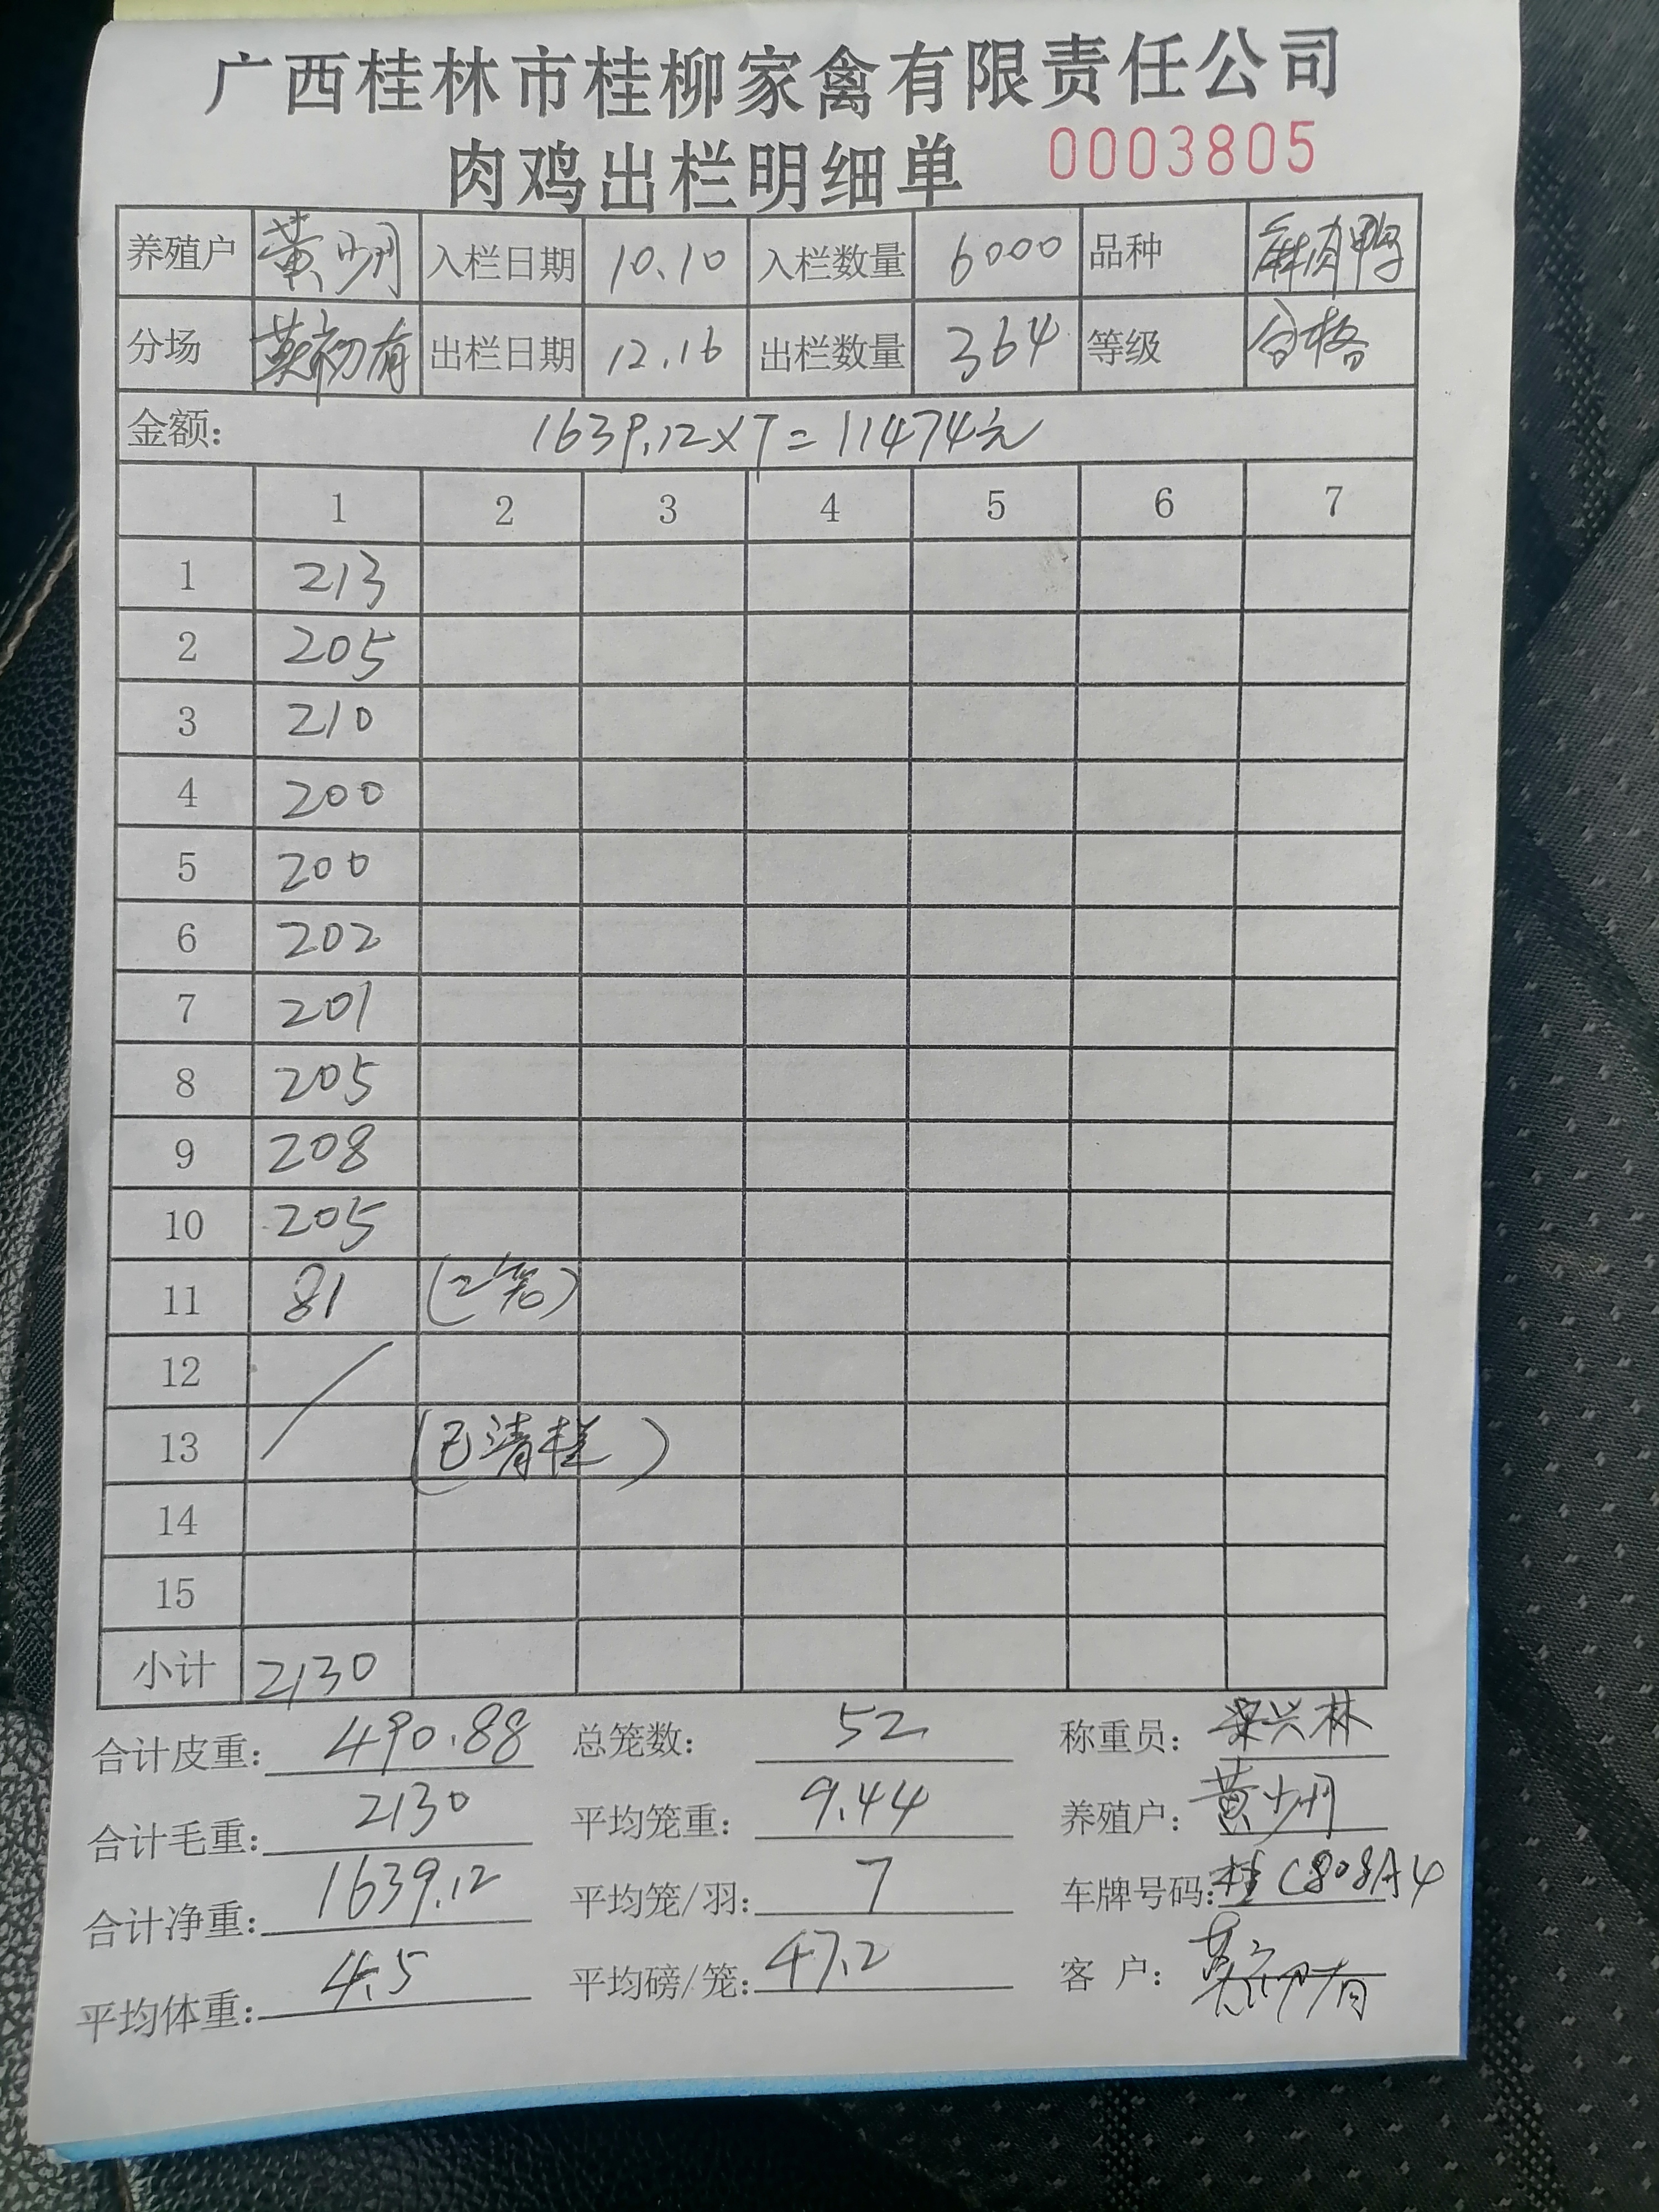 广西桂林市桂柳家禽有限责任公司
肉鸡出栏明细单 0003805
养殖户 黄少明 入栏日期 10.10 入栏数量 6000 品种 麻肉鸭
分场 莫初有 出栏日期 12.16 出栏数量 364 等级 合格
金额: 1639.12×7=11474元
1 2 3 4 5 6 7
1 213
2 205
3 210
4 200
5 200
6 202
7 201
8 205
9 208
10 205
11 81 (2笼)
12
13 (已清栏)
14
15
小计 2130
合计皮重: 490.88 总笼数: 52 称重员: 梁兴林
合计毛重: 2130 平均笼重: 9.44 养殖户: 黄少明
合计净重: 1639.12 平均笼/羽: 7 车牌号码: 桂C808A4
平均体重: 4.5 平均磅/笼: 47.2 客户: 莫初有